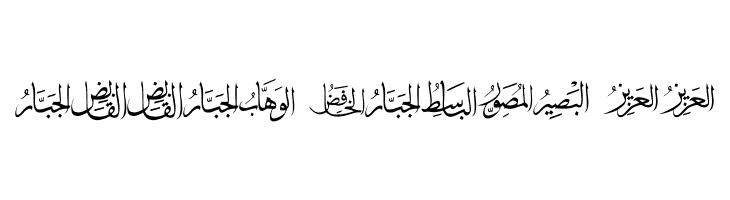 العَزِيزُ العَزِيزُ البَصِيرُ المُصَوِّرُ البَاسِطُ الجَبَّارُ الخَافِضُ الوَهَّابُ الجَبَّارُ القَابِضُ القَابِضُ الجَبَّارُ